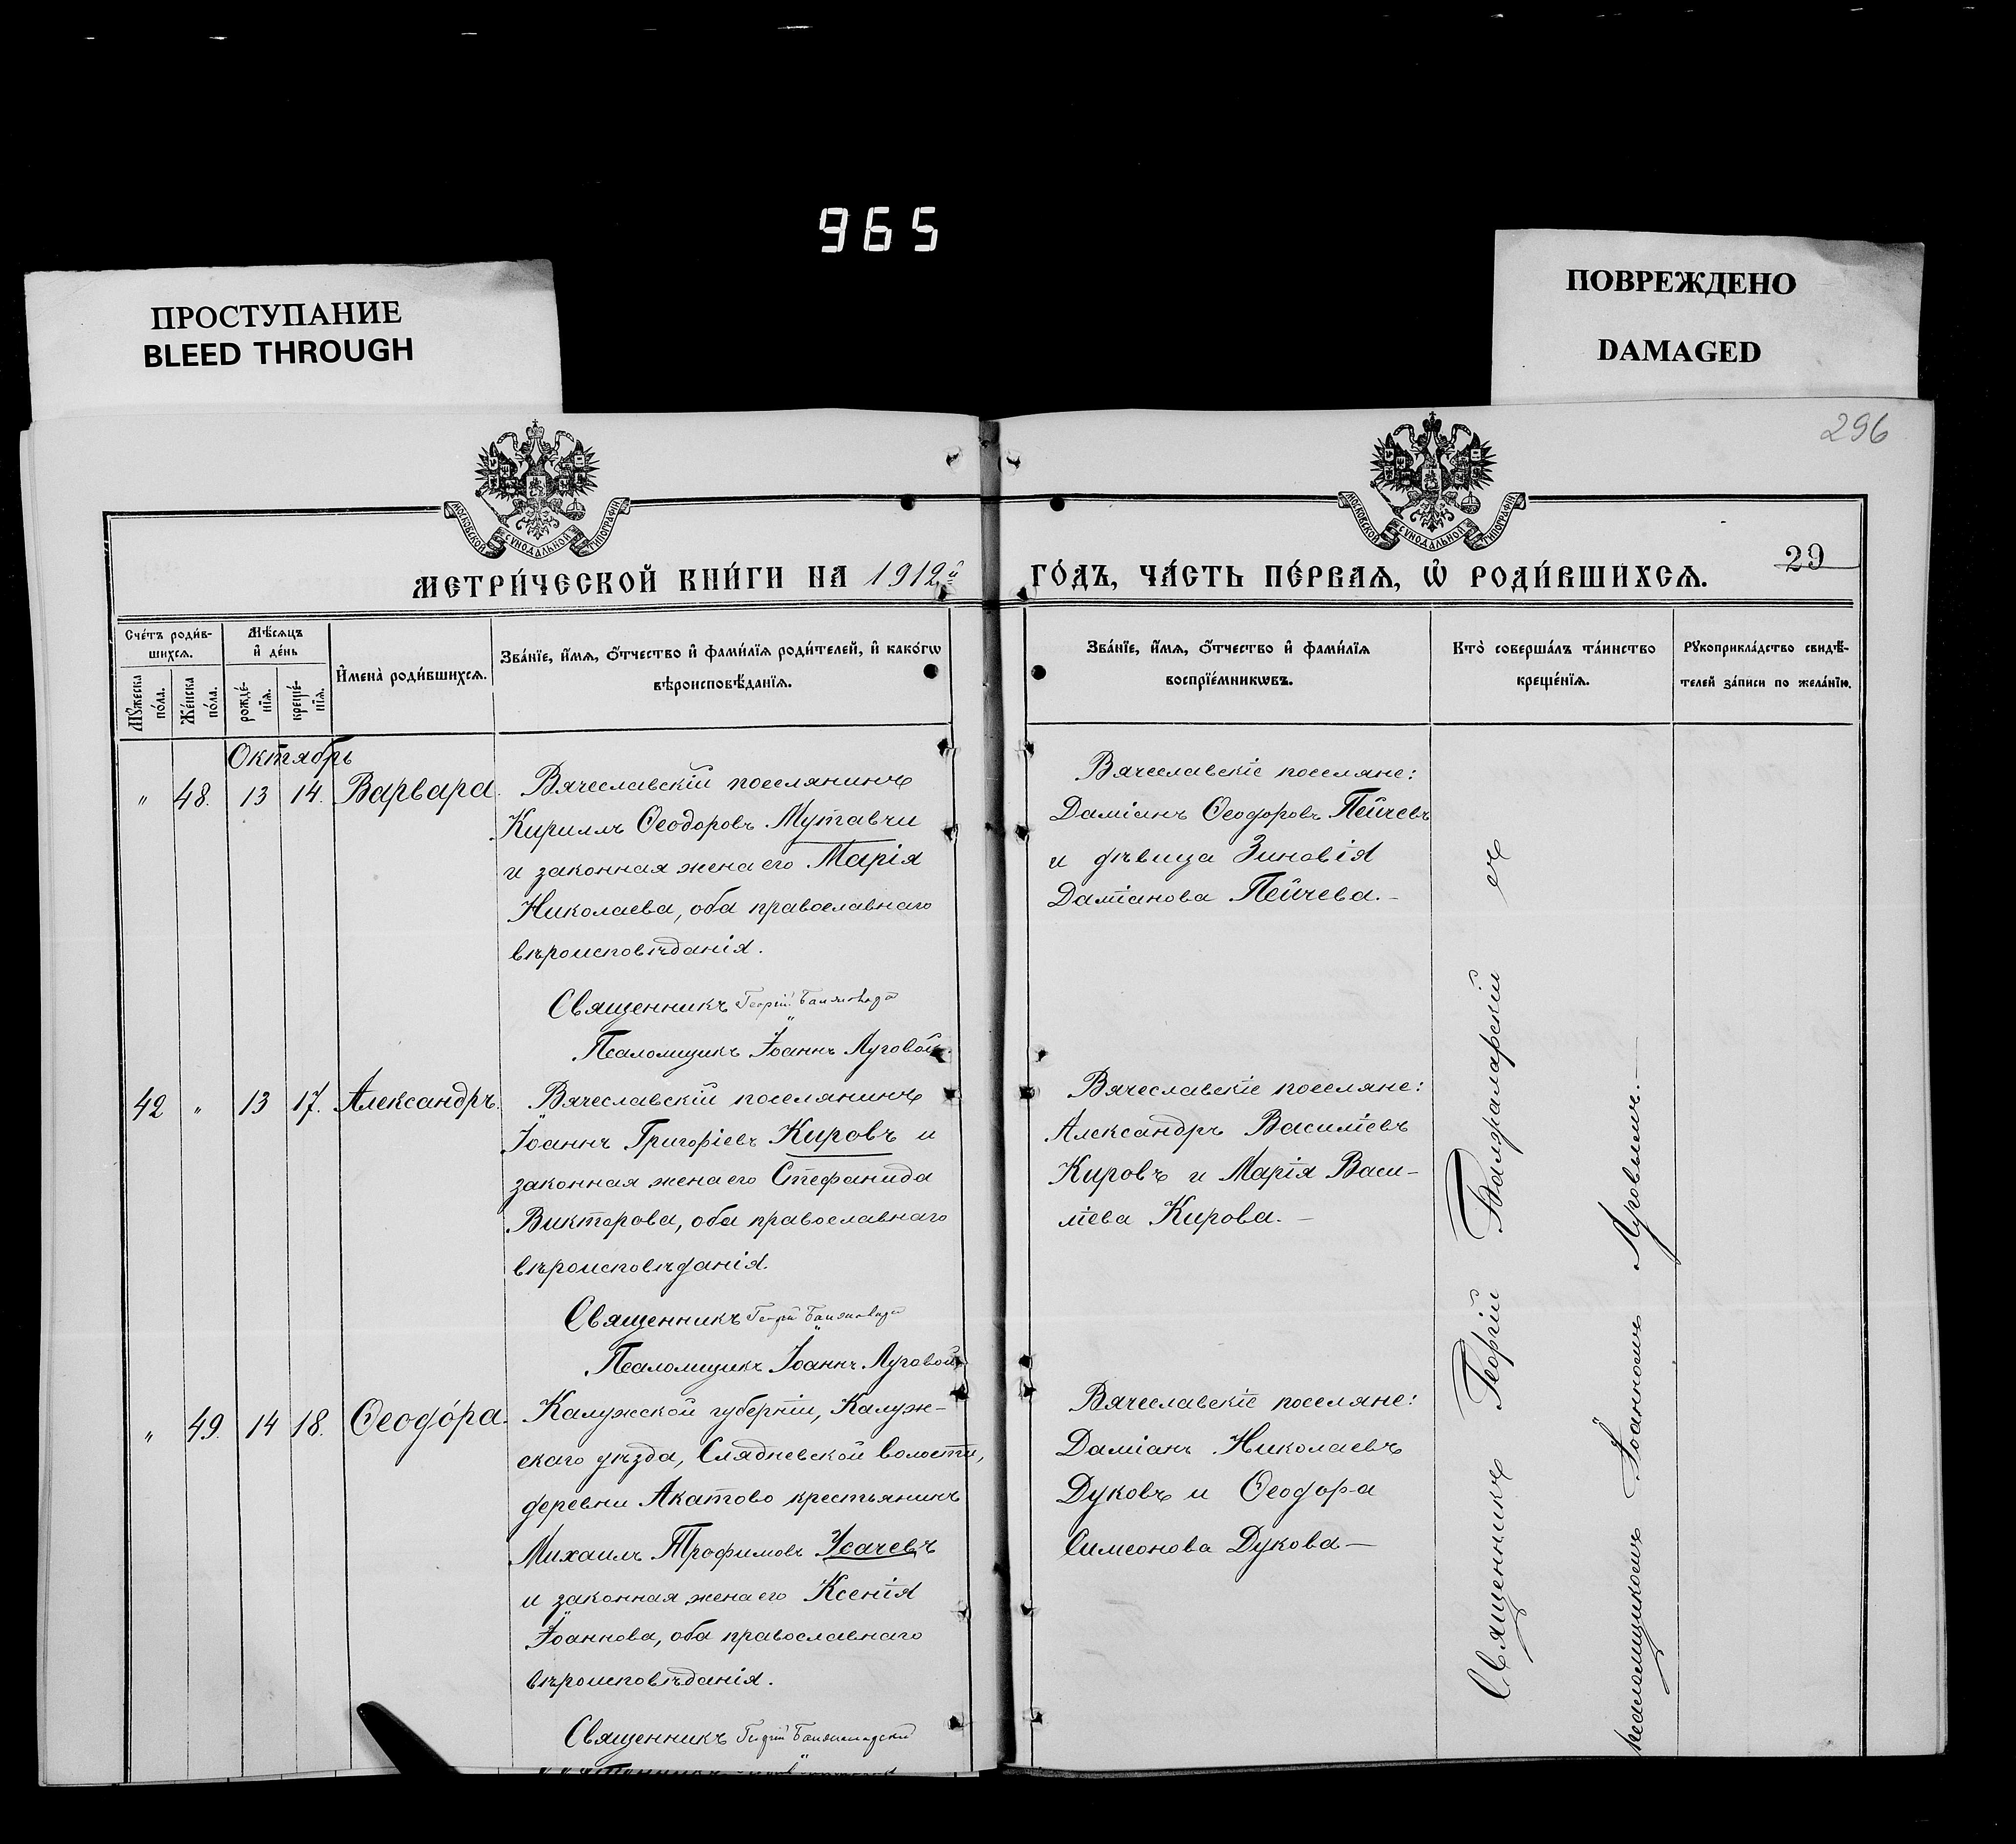 965
ПРОСТУПАНИЕ
BLEED THROUGH
ПОВРЕЖДЕНО
DAMAGED
296
МОСКОВСКОЙ СѴНОДАЛЬНОЙ ТИПОГРАФІИ
МОСКОВСКОЙ СѴНОДАЛЬНОЙ ТИПОГРАФІИ
29
МЕТРИ́ЧЕСКОЙ КНИ́ГИ НА 1912й ГО́ДЪ, ЧА́СТЬ ПЕ́РВАѦ, Ѡ҆ РОДИ́ВШИХСѦ.
Сче́тъ роди́в-
шихсѧ.
Мꙋ́жеска по́ла.
Же́нска по́ла.
Мѣ́сѧцъ
и҆ де́нь
рожде́-нїѧ.
креще́-нїѧ.
И҆мена̀ роди́вшихсѧ.
Зва́нїе, и҆́мѧ, ѻ҆́тчество и҆ фами́лїѧ роди́телей, и҆ како́гѡ
вѣроисповѣ́данїѧ.
Зва́нїе, и҆́мѧ, ѻ҆́тчество и҆ фами́лїѧ
воспрїе́мникѡвъ.
Кто̀ соверша́лъ та́инство
креще́нїѧ.
Рꙋкоприкла́дство свидѣ́-
телей за́писи по жела́нїю.
Октябрь
" 48. 13 14. Варвара.
Вячеславскій поселянинъ
Кириллъ Ѳеодоровъ Мутавчи
и законная жена его Марія
Николаева, оба православнаго
вѣроисповѣданія.
Священникъ Георгій
Псаломщикъ Іоаннъ Луговой.
Вячеславскіе поселяне:
Даміанъ Ѳеодоровъ Пейчевъ
и дѣвица Зиновія
Даміанова Пейчева.-
42 " 13 17. Александръ.
Вячеславскій поселянинъ
Іоаннъ Григоріевъ Кировъ и
законная жена его Стефанида
Викторова, оба православнаго
вѣроисповѣданія.
Священникъ Георгій
Псаломщикъ Іоаннъ Луговой
Вячеславскіе поселяне:
Александръ Василіевъ
Кировъ и Марія Васи-
ліева Кирова.-
" 49. 14 18. Ѳеодо́ра.
Калужской губерніи, Калуж-
скаго уѣзда, Слядневской волости,
деревни Акатово крестьянинъ
Михаилъ Трофимовъ Усачевъ
и законная жена его Ксенія
Іоаннова, оба православнаго
вѣроисповѣданія.
Священникъ Георгій
Вячеславскіе поселяне:
Даміанъ Николаевъ
Дуковъ и Ѳеодора
Симеонова Дукова-
Священникъ Георгій съ
псаломщикомъ Іоанномъ Луговымъ.-